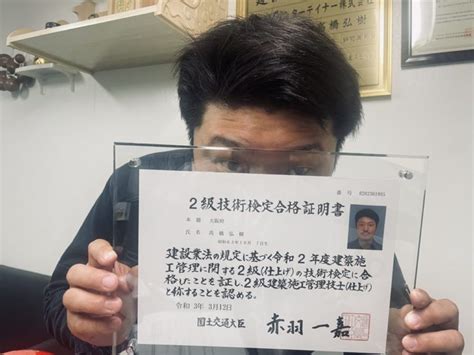 橋弘樹
ターテイナー(株)
2級技術検定合格証明書
本籍 大阪府
氏名 髙橋弘樹
建設業法の規定に基づく令和2年度建築施
工管理に関する2級(仕上げ)の技術検定に合
格したことを証し2級建築施工管理技士(仕上げ)
と称することを認める。
令和3年3月12日
国土交通大臣 赤羽一嘉